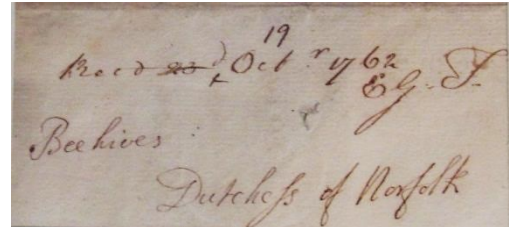 19
Recd 23d Octr. 1762
E G. F
Beehives
Dutchess of Norfolk